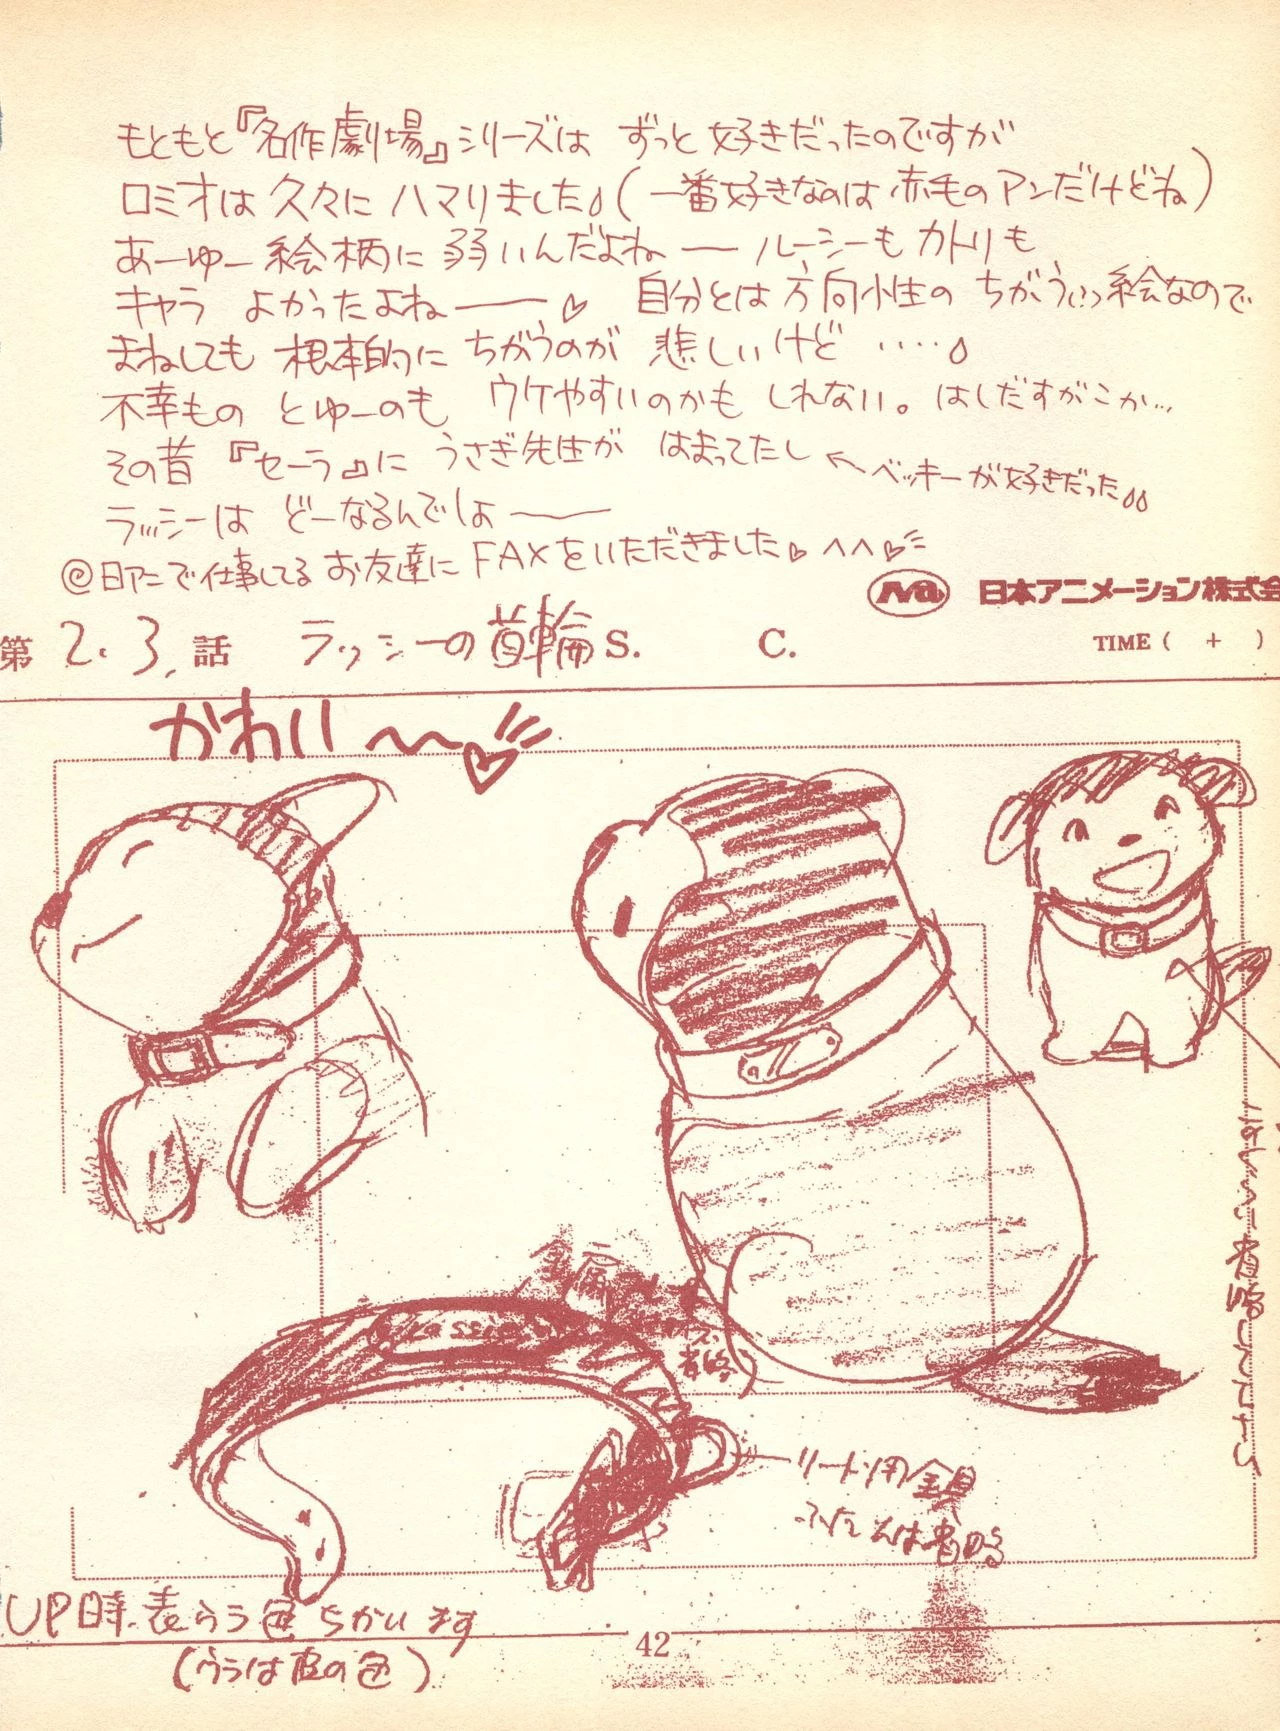 もともと『名作劇場』シリーズは ずっと 好きだったのですが
ロミオは 久々に ハマりました（一番好きなのは 赤毛のアンだけどね）
あーゆー 絵柄に 弱いんだよねー ルーシーも カトリも
キャラ よかったよねー♡ 自分とは 方向性の ちがう 絵なので
まねしても 根本的に ちがうのが 悲しいけど ‥‥
不幸もの とゆーのも ウケやすいのかも しれない。はしだすがこか…
その昔 『セーラ』に うさぎ先生が はまってたし ←ベッキーが好きだった
ラッシーは どーなるんでしょー
@日アニで仕事してる お友達に FAXをいただきました♡ ^^♡
日本アニメーション株式会
第 2.3. 話 ラッシーの首輪 S. C. TIME ( + )
かわい〜〜♡
金属
省略
リード用金具
ふだんは省略
UP時 表うら色ちがいます
(ウラは皮の色)
42